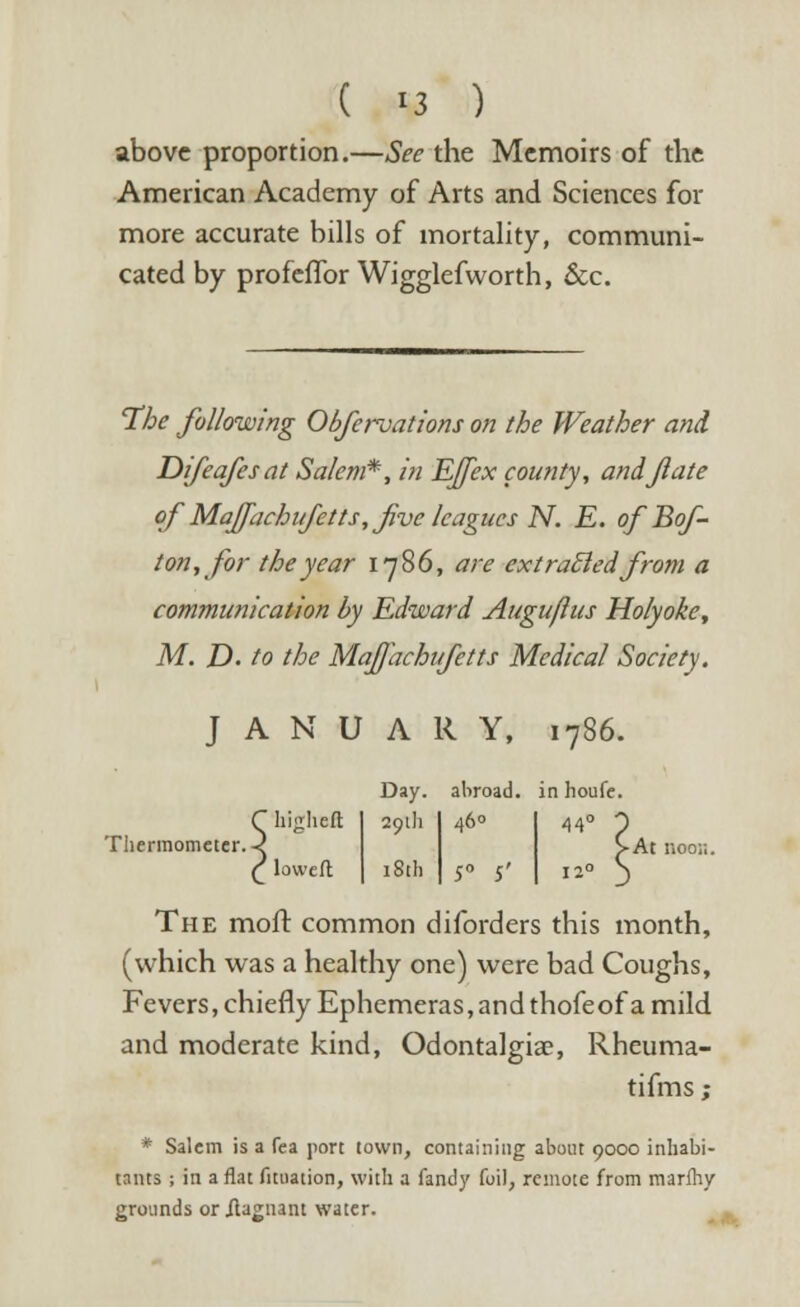 ( 13 )
above proportion.—See the Memoirs of the
American Academy of Arts and Sciences for
more accurate bills of mortality, communi-
cated by profeſſor Wiggleſworth, &c.
The following Obſervations on the Weather and
Diſeaſes at Salem*, in Eſſex county, and ſtate
of Maſſachuſetts, five leagues N. E. of Boſ-
ton, for the year 1786, are extracted from a
communication by Edward Auguſtus Holyoke,
M. D. to the Maſſachuſetts Medical Society.
JANUARY, 1786.
Day. abroad. in houſe.
Thermometer. { higheſt | 29th | 46° | 44° } At noon.
{ loweſt | 18th | 5° 5′ | 12° }
THE moſt common diſorders this month,
(which was a healthy one) were bad Coughs,
Fevers, chiefly Ephemeras, and thoſe of a mild
and moderate kind, Odontalgiæ, Rheuma-
tiſms;
* Salem is a ſea port town, containing about 9000 inhabi-
tants ; in a flat ſituation, with a ſandy ſoil, remote from marſhy
grounds or ſtagnant water.